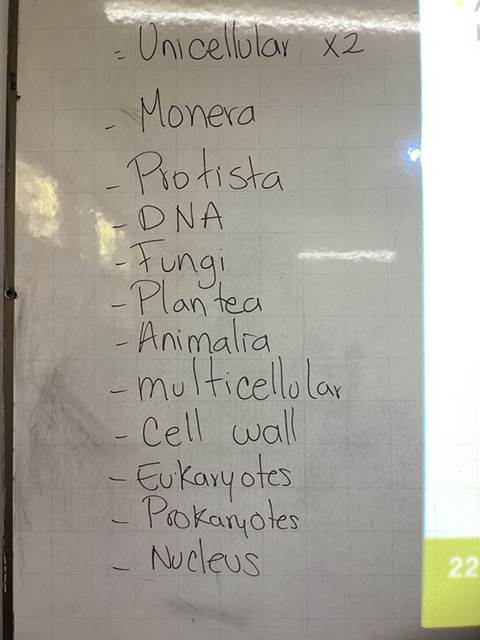 = Unicellular x2
- Monera
- Protista
- DNA
- Fungi
- Plantea
- Animalia
- multicellular
- Cell wall
- Eukaryotes
- Prokaryotes
- Nucleus
22